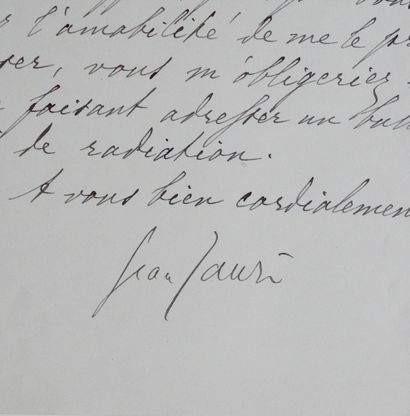 l'amabilité de me le pr
ser, vous m'obligeriez
faisant adresser un bul
de radiation.
A vous bien cordialemen
Jean Jaurès